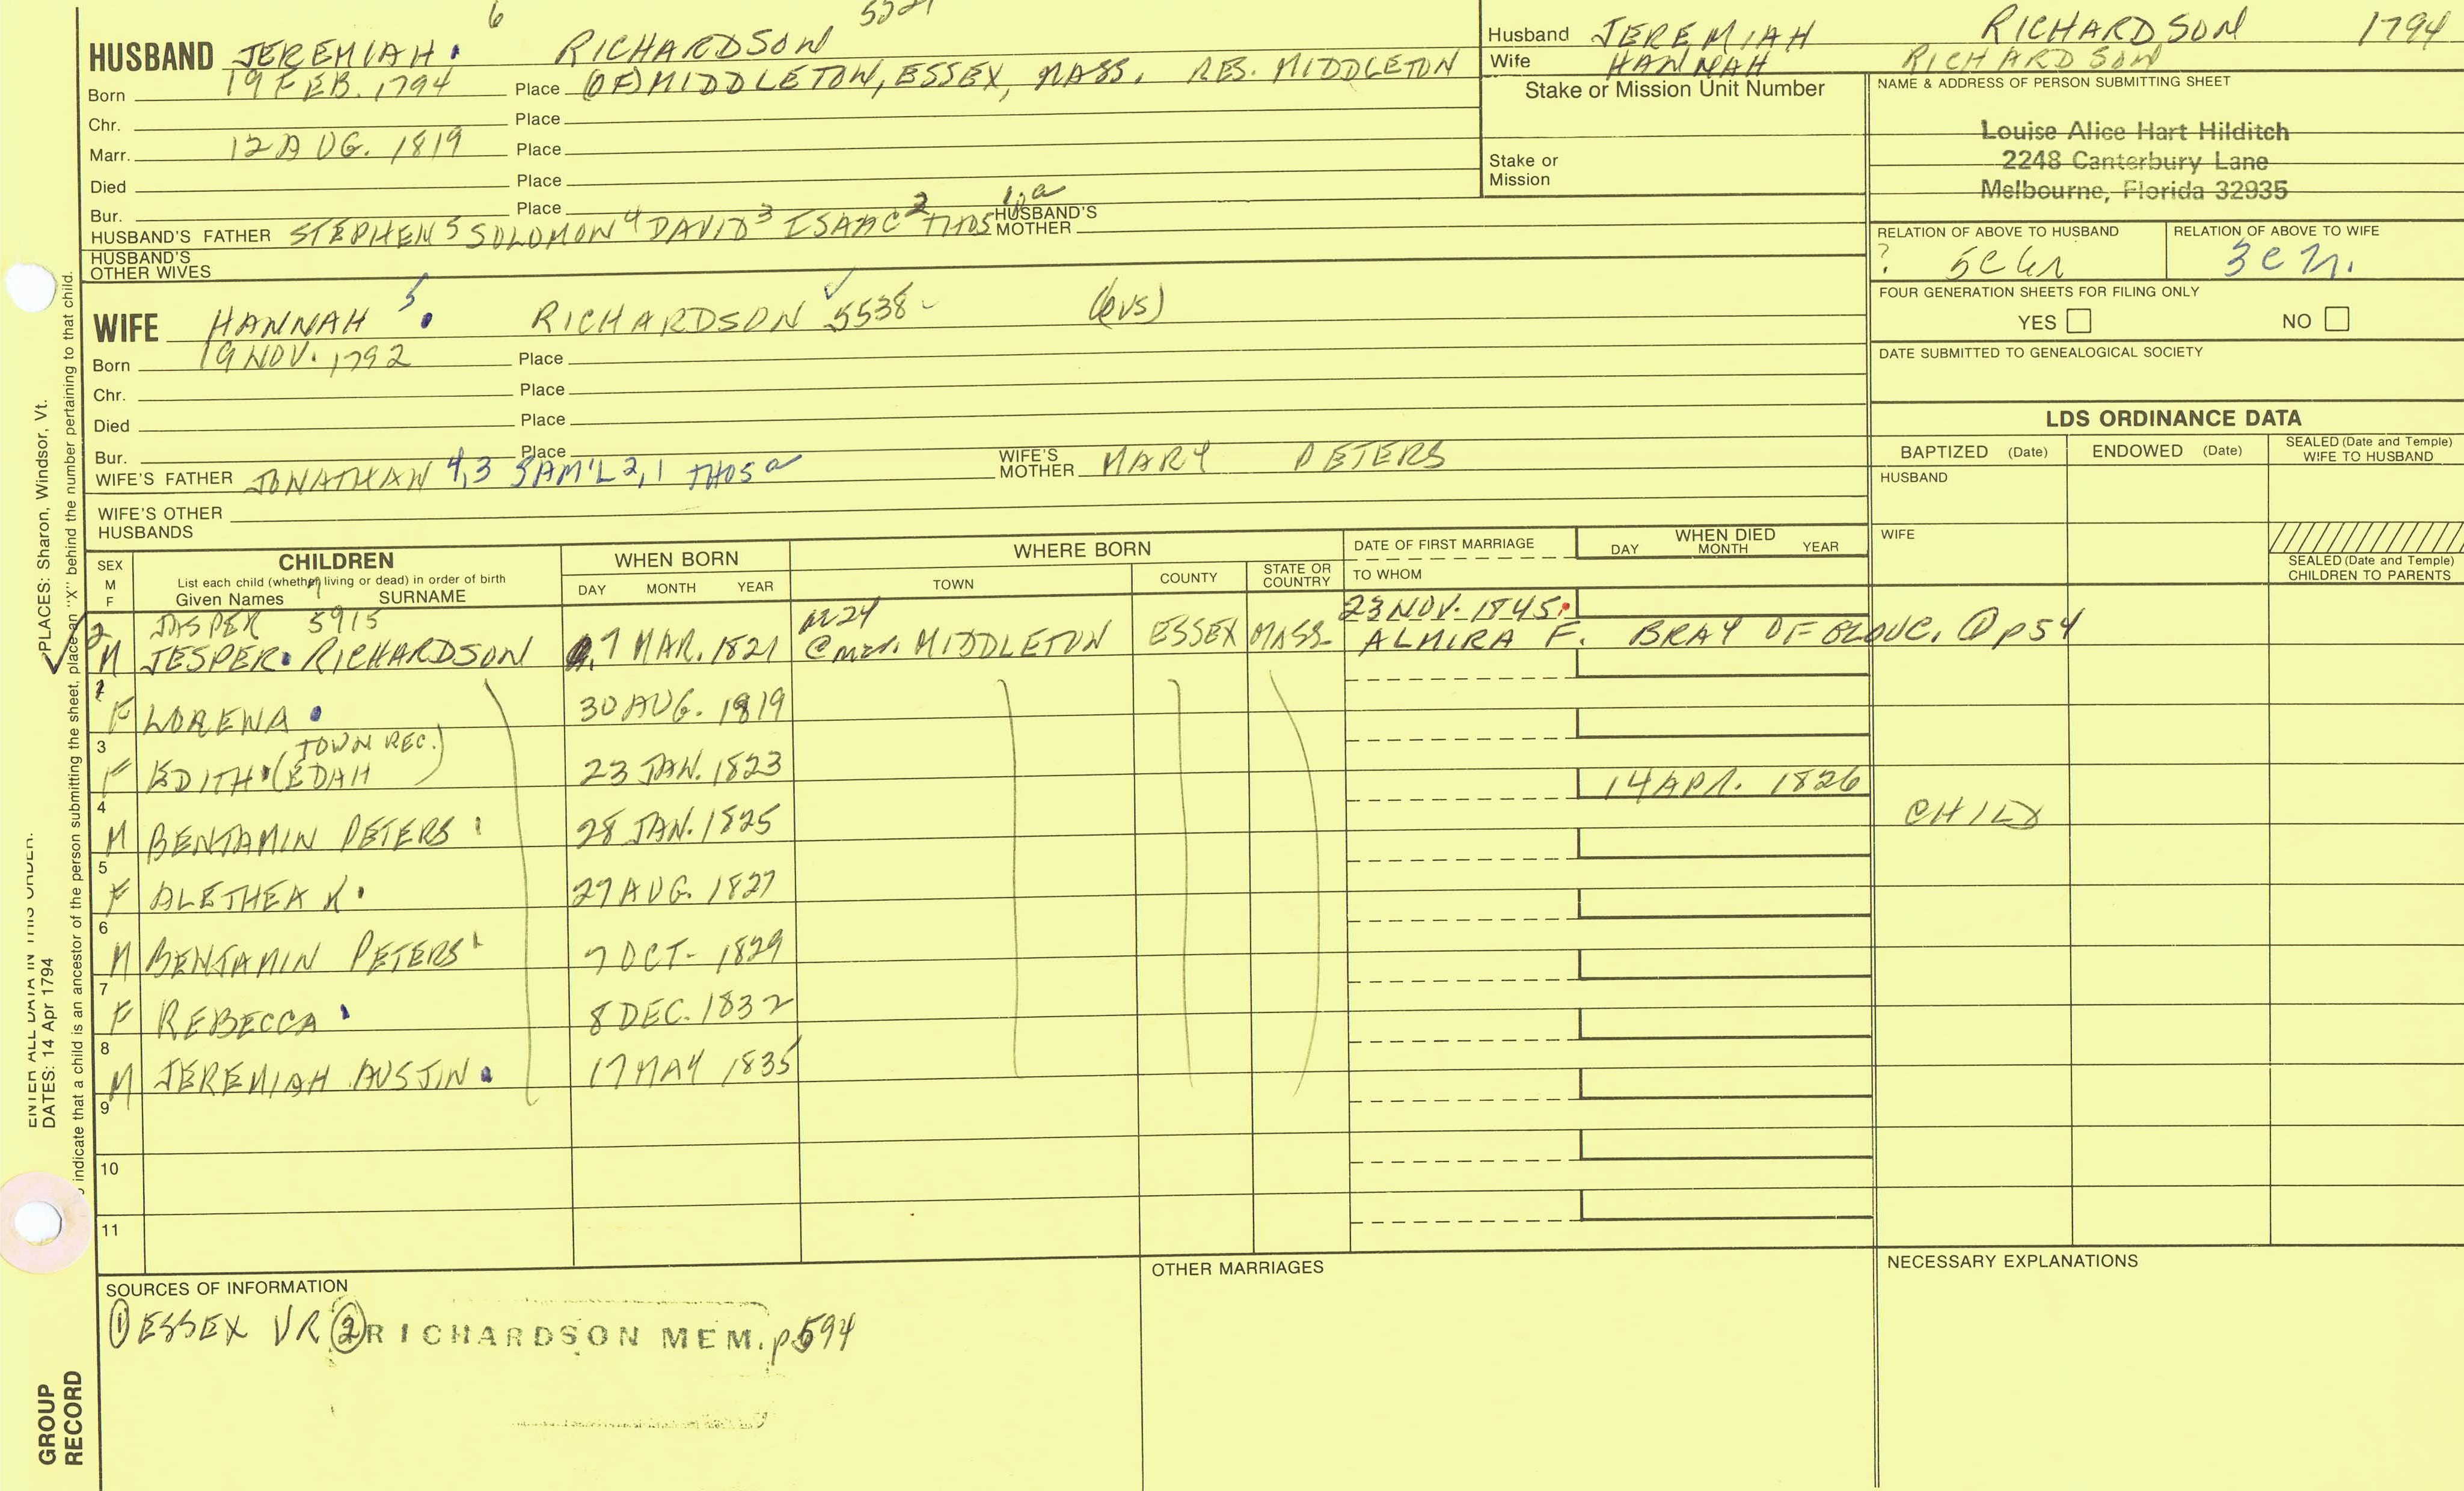 6 5521
HUSBAND JEREMIAH RICHARDSON
Born 19 FEB. 1794 Place (OF) MIDDLETON, ESSEX, MASS. RES. MIDDLETON
Chr. Place
Marr. 12 AUG. 1819 Place
Died Place
Bur. Place
HUSBAND'S FATHER STEPHEN 5 SOLOMON 4 DAVID 3 ISAAC 2 THOS 1,a HUSBAND'S MOTHER
HUSBAND'S OTHER WIVES
Husband JEREMIAH RICHARDSON 1794
Wife HANNAH RICHARDSON
Stake or Mission Unit Number
Stake or Mission
NAME & ADDRESS OF PERSON SUBMITTING SHEET
Louise Alice Hart Hilditch
2248 Canterbury Lane
Melbourne, Florida 32935
RELATION OF ABOVE TO HUSBAND RELATION OF ABOVE TO WIFE
? 5C4r 3C
FOUR GENERATION SHEETS FOR FILING ONLY
YES NO
DATE SUBMITTED TO GENEALOGICAL SOCIETY
WIFE HANNAH 5 RICHARDSON 5538
Born 19 NOV. 1792 Place
Chr. Place
Died Place
Bur. Place
WIFE'S FATHER JONATHAN 4,3 SAM'L 2,1 THOS a WIFE'S MOTHER MARY PETERS
WIFE'S OTHER HUSBANDS
LDS ORDINANCE DATA
BAPTIZED (Date) ENDOWED (Date) SEALED (Date and Temple) WIFE TO HUSBAND
HUSBAND
WIFE
SEALED (Date and Temple) CHILDREN TO PARENTS
SEX M F
CHILDREN
List each child (whether living or dead) in order of birth
Given Names SURNAME
WHEN BORN
DAY MONTH YEAR
WHERE BORN
TOWN COUNTY STATE OR COUNTRY
DATE OF FIRST MARRIAGE
TO WHOM
WHEN DIED
DAY MONTH YEAR
JASPER 5915 23 NOV. 1845
2 M JESPER RICHARDSON 7 MAR. 1821 MIDDLETON ESSEX MASS. ALMIRA F. BRAY OF GLOUC. @ p54
1 F LORENA 30 AUG. 1819
3 F EDITH (EDAH TOWN REC.) 23 JAN. 1823
4 M BENJAMIN PETERS 28 JAN. 1825 14 APR. 1826 CHILD
5 F ALETHEA 27 AUG. 1827
6 M BENJAMIN PETERS 7 OCT- 1829
7 F REBECCA 8 DEC. 1832
8 M JEREMIAH AUSTIN 17 MAY 1835
9
10
11
SOURCES OF INFORMATION
① ESSEX VR ② RICHARDSON MEM. p594
OTHER MARRIAGES
NECESSARY EXPLANATIONS
ENTER ALL DATA IN THIS ORDER:
DATES: 14 Apr 1794
PLACES: Sharon, Windsor, Vt.
indicate that a child is an ancestor of the person submitting the sheet, place an "X" behind the number pertaining to that child.
GROUP
RECORD